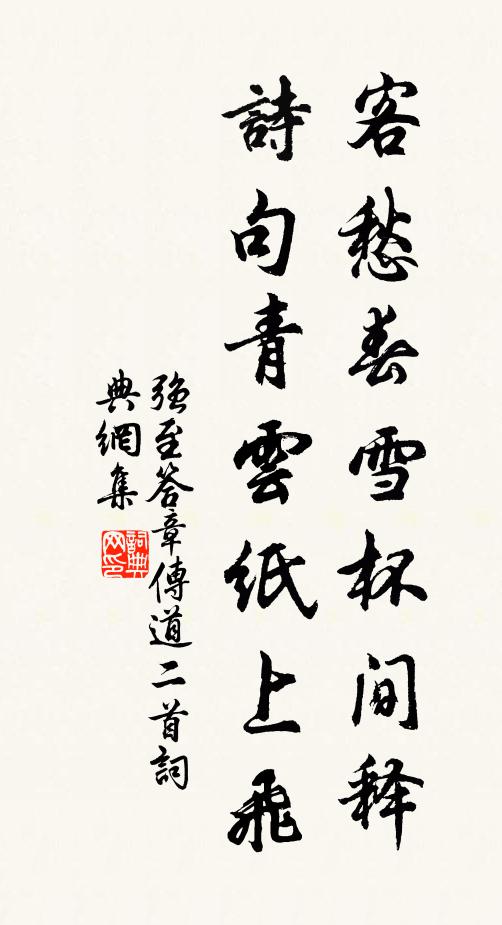 客愁春雪杯间释
詩句青雲紙上飛
強至答章傳道二首詞
典網集
詞典
网印